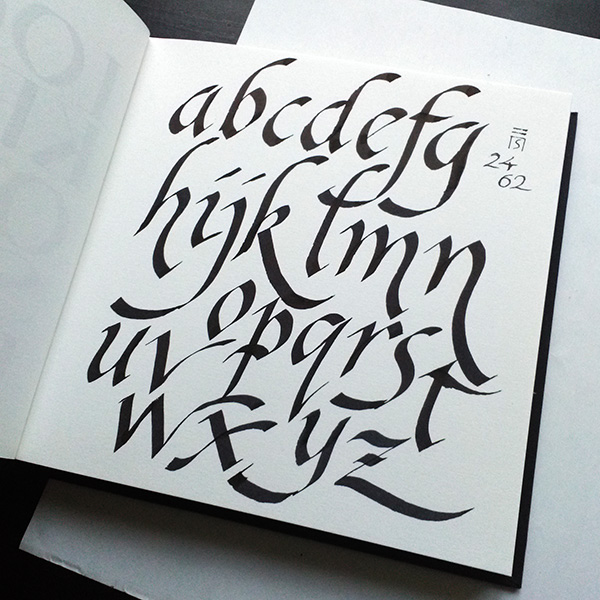 abcdefg
hijklmn
opqrst
uv
wxyz
24
62